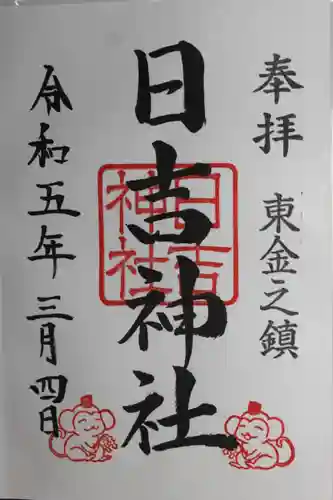 奉拝 東金之鎮
日吉神社
日吉神社
令和五年三月四日